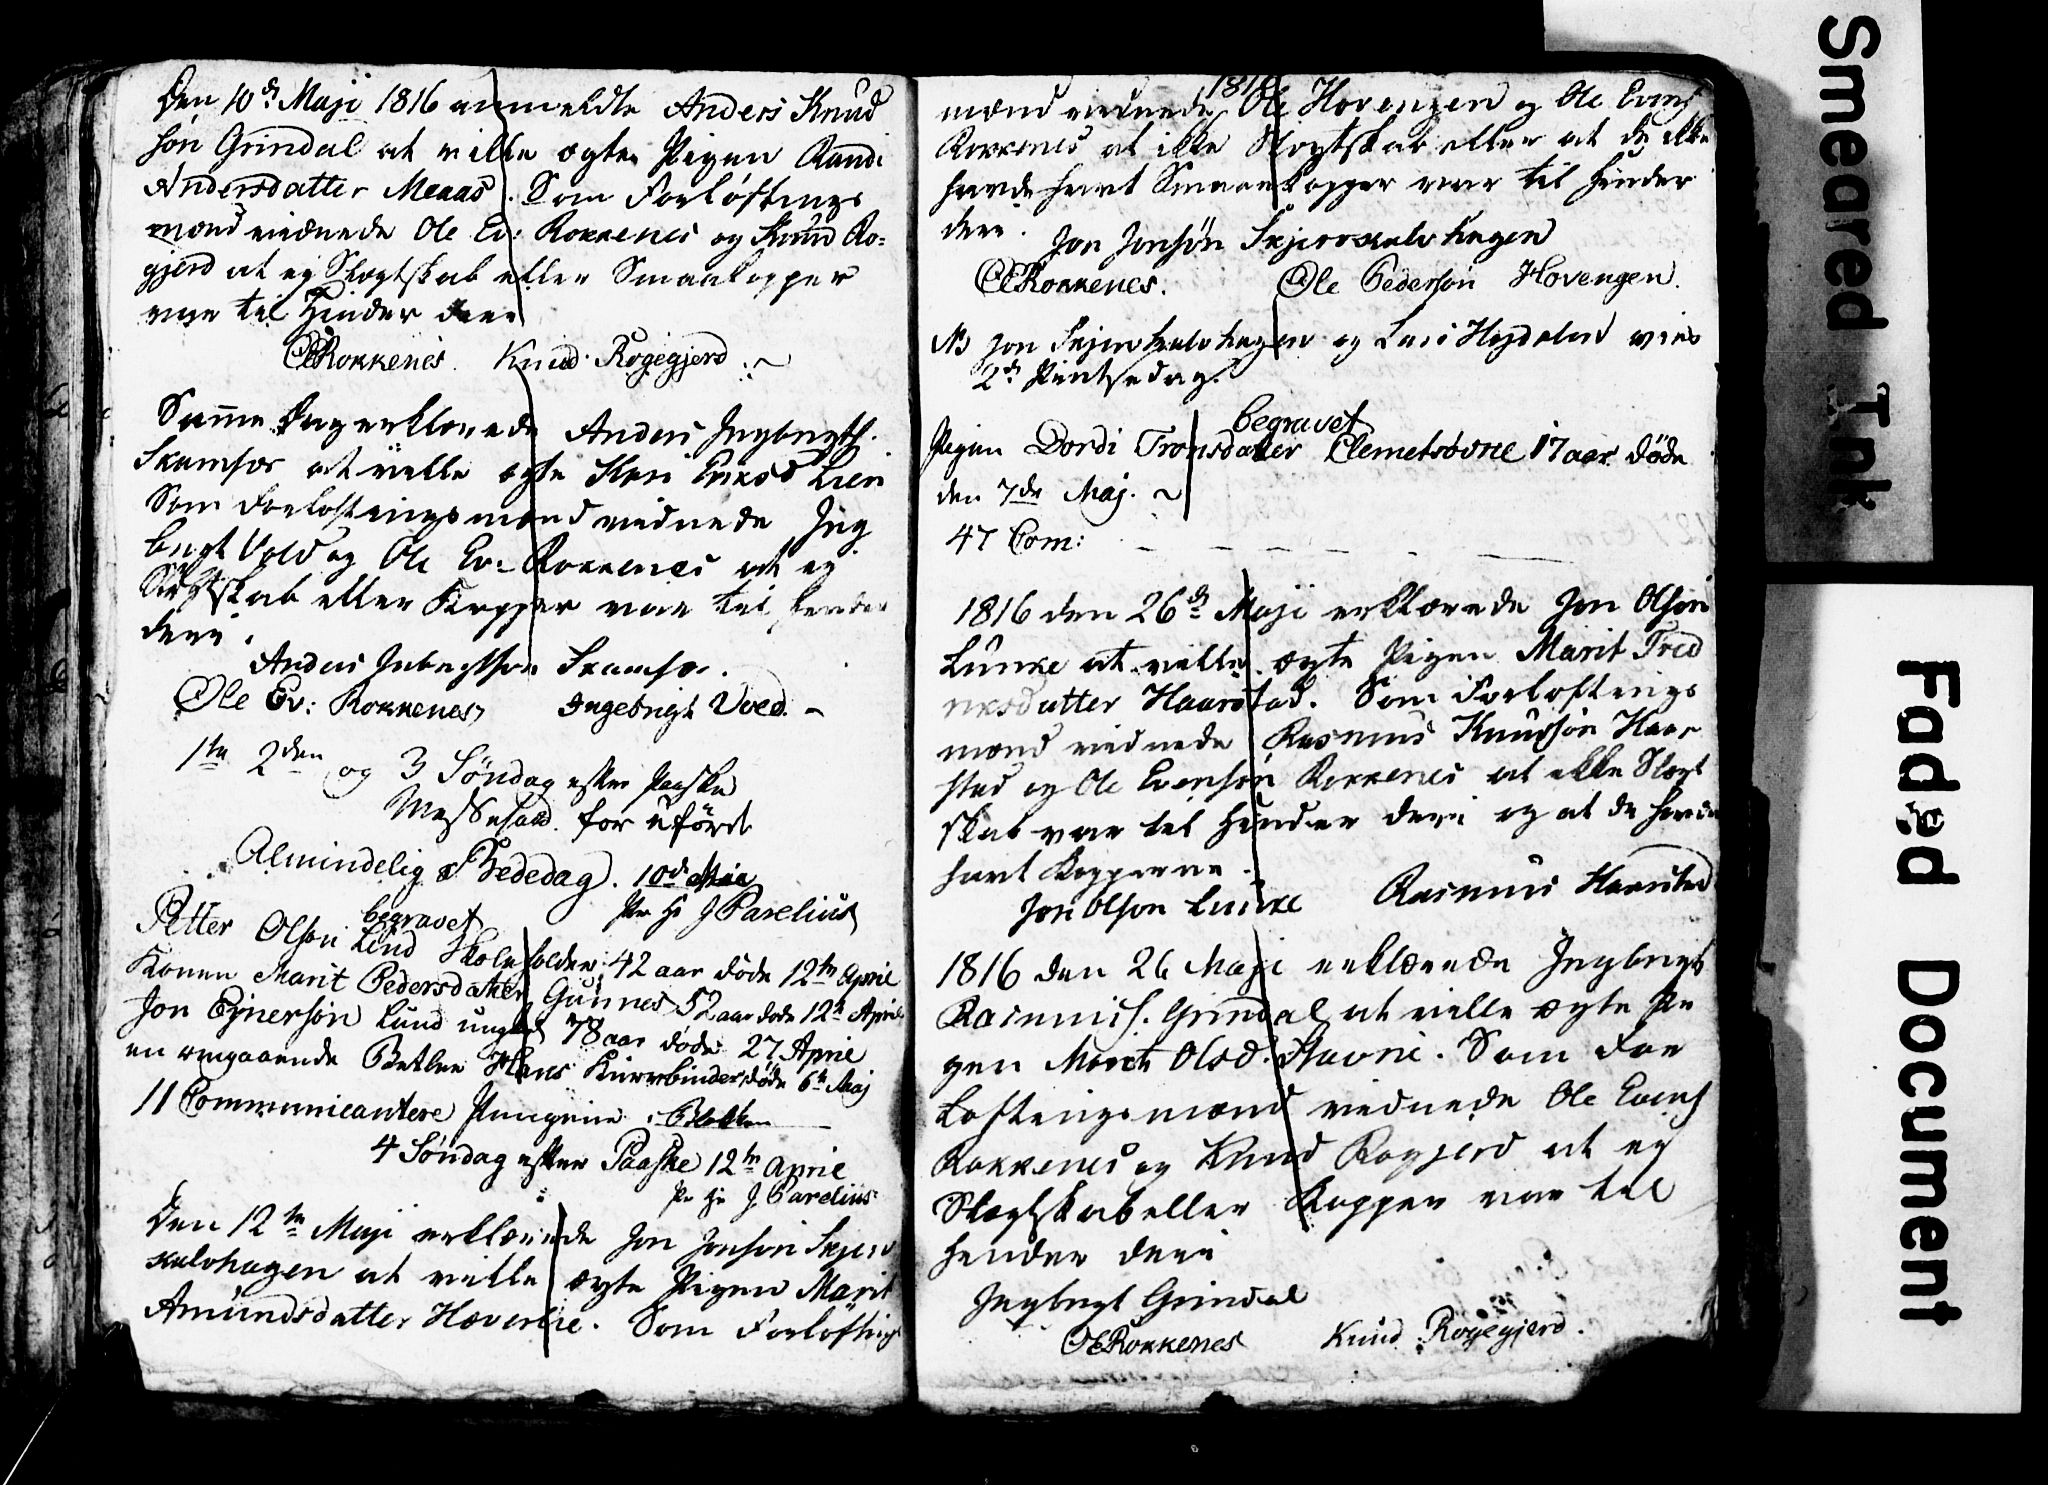 Den 10de Maji 1816 anmeldte Anders Knud
søn Grindal at ville ægte Pigen Randi
Andersdatter Meaas. Som Forløftnings
mænd vidnede Ole Ev: Rokkenes og Knud Ro=
gjerd at ey Slægtskab eller Smaakopper
var til Hinder deri
OERokkenes. Knud Rogegjerd
Samme Dag erklærede Anders Ingbrigths.
Skamfer at ville ægte Kari Eriksd Lien
Som Forloftningsmænd vidnede Ing
brigt Vold og Ole Ev: Rokkenes at ey
Slægtskab eller Kopper var til hinder
deri.
Anders Inbrigtson Skamfer.
Ole Ev: Rokkenes Ingebrigt Voed.
1te 2den og 3 Søndag efter Paaske
Messefald for uførdt
Almindelig Bededag. 10de Maii
Pr Hr J Parelius
begravet
Petter Olson Lund Skoleholder, 42 aar døde 12te April
Konen Marit Pedersdatter Gunnes 52 aar døde 12te April
Jon Ejnersøn Lund ungkl 78 aar døde 27 April
en omgaaende Betler Hans Kurvbinder, døde 6te Maj
11 Communicantere
4 Søndag efter Paaske 12te April
Pr Hr J. Parelius
Den 12te Maji erklærede Jon Jonsøn Skjerv
kalvhagen at ville ægte Pigen Marit
Amundsdatter Hæverlie. Som Forløftnings
1816
mænd vidnede Ole Hovengen og Ole Evens
Rokkenes at ikke Slægtskab eller at de ikke
havde havt Smaaekopper var til hinder
deri.
Jon Jonsøn Skjervskalvhagen
OERokkenes. Ole Pedersøn Hovengen.
NB Jon Skjerkalvhagen og Hejdalen vies
2den Pintsedag.
begravet
Pigen Dordi Tronsdatter Clemetsovne 17 aar døde
den 7de Maj.
47 Com:
1816 den 26de Maji erklærede Jon Olsøn
Lunke at ville ægte Pigen Marit Fred
riksdatter Haarstad. Som Forloftnings
mænd vidnede Rasmus Knudsøn Haar
stad og Ole Evensøn Rokkenes at ikke Slægt
skab var til Hinder deri og at de havde
havt Kopperne.
Jon Olson Lunke Rasmus Haarstad
1816 den 26 Maji erklærede Ingbrigt
Rasmus. Grindal at ville ægte Pi
gen Marit Olsd. Stavne. Som For
loftningsmænd vidnede Ole Evens
Rokkenes og Knud Rogjerd at ey
Slægtskab eller Kopper var til
hinder deri
Ingbrigt Grindal
OERokkenes Knud Rogegjerd.
Smeared Ink
Faded Document